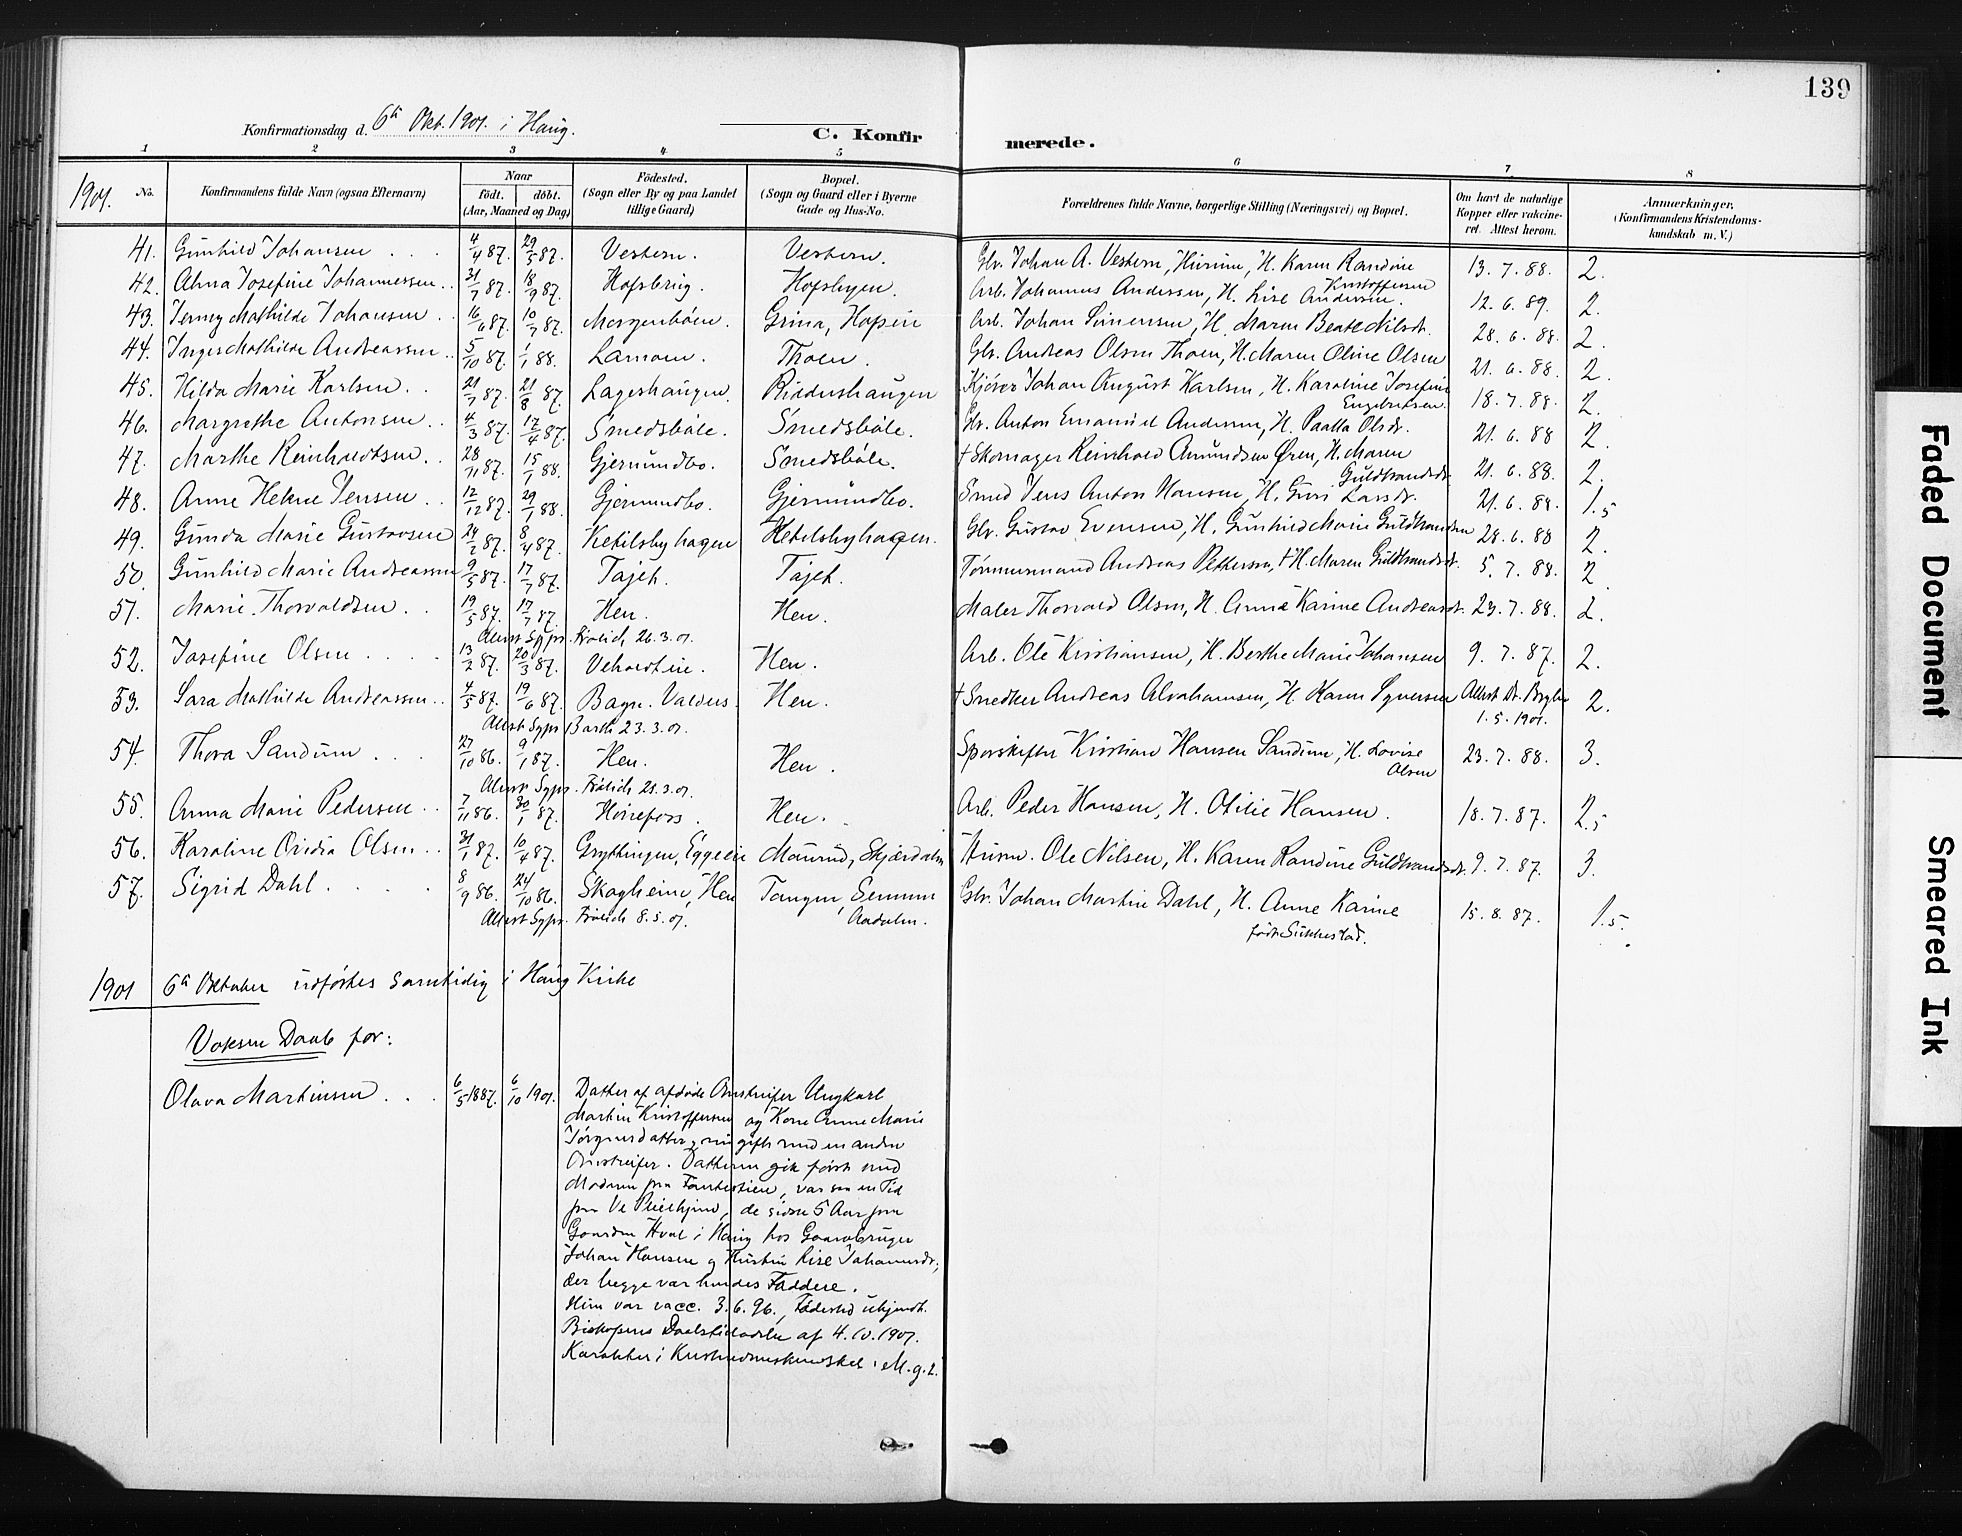 139
Konfirmationsdag d. 6te Okt. 1901. i Haug.
C. Konfirmerede.
1 2 3 4 5 6 7 8
1901. No. Konfirmandens fulde Navn (ogsaa Efternavn) Naar født. døbt. (Aar, Maaned og Dag) Fødested. (Sogn eller By og paa Landet tillige Gaard) Bopæl. (Sogn og Gaard eller i Byerne Gade og Hus-No. Forældrenes fulde Navne, borgerlige Stilling (Næringsvei) og Bopæl. Om havt de naturlige Kopper eller vakcineret. Attest herom. Anmærkninger. (Konfirmandens Kristendomskundskab m. V.)
41. Gunhild Johansen 4/4 87. 29/5 87. Vestern. Vestern. Gbr. Johan A. Vestern, Hurum, H. Karen Randine Kristoffersen 13.7.88. 2.
42. Alma Josefine Johannessen 31/7 87. 18/9 87. Hofsbrug. Hofsbyen. Arb. Johannes Andersen, H. Lise Andersen. 12.6.89. 2.
43. Jenny Mathilde Johansen 16/6 87. 10/7 87. Morgenbøen. Grina, Hofsin Arb. Johan Simensen, H. Maren Beate Nilsdt. 28.6.88. 2.
44. Inger Mathilde Andreassen 5/10 87. 1/1 88. Lamoen. Thoen. Gbr. Andreas Olsen Thoen, H. Maren Oline Olsen 21.6.88. 2.
45. Hilda Marie Karlsen 21/7 87. 21/8 87. Lageshaugen. Riddershaugen Kjører Johan August Karlsen, H. Karoline Josefine Engebretsen. 18.7.88. 2.
46. Margrethe Antonsen 4/3 87. 17/4 87. Smedsbøle. Smedsbøle. Gbr. Anton Emanuel Andersen, H. Olsdt. 21.6.88 2.
47. Marthe Reinholdtsen 28/11 87. 15/1 88. Gjermundbo. Smedsbøle. † Skomager Reinhold Amundsen Øren, H. Maren Guldbrandsdt. 21.6.88. 2.
48. Anne Helene Jensen 12/12 87. 29/1 88. Gjermundbo. Gjermundbo. Smed Jens Anton Hansen, H. Guri Larsdt. 21.6.88. 1.5
49. Gunda Marie Gustavsen 24/2 87. 8/4 87. Ketilsbyhagen Hetilsbyhagen. Gbr. Gustav Evensen, H. Gunhild Marie Guldbrandsen 28.6.88 2.
50. Gunhild Marie Andreassen 9/5 87. 17/7 87. Tajet. Tajet. Tømmermand Andreas Pettersen, † H. Maren Guldbrandsdt. 5.7.88. 2
51. Marie Thorvaldsen 19/5 87. 17/7 87. Hen. Hen. Maler Thorvald Olsen, H. Anne Karine Andreasdt. 23.7.88. 2.
Attest Spps. Frølich 26.3.01.
52. Josefine Olsen 13/2 87. 20/3 87. Veholdtin. Hen. Arb. Ole Kristiansen, H. Berthe Marie Johansen 9.7.87. 2.
53. Sara Mathilde Andreassen 4/5 87. 19/6 87. Bagn. Valders. Hen. † Snedker Andreas Abrahamsen, H. Karen Syversen Attest Dr. 1.5.1901. 2.
Attest Spps Barth 23.3.01.
54. Thora Sandum 27/10 86. 9/1 87. Hen. Hen. Sporskifter Kristian Hansen Sandum, H. Lovise Olsen 23.7.88. 3.
Attest Spps. Frølich 21.3.01.
55. Anna Marie Pedersen 7/11 86. 30/1 87. Hønefos. Hen. Arb. Peder Hansen, H. Otilie Hansen. 18.7.87. 2.5
56. Karoline Ovidia Olsen 31/1 87. 10/4 87. Grythingen, Eggeeie Maurud, Skjærdalen Husm. Ole Nilsen, H. Karen Randine Guldbrandsdt. 9.7.87. 3.
57. Sigrid Dahl 8/9 86. 24/10 86. Skagheim, Hen Tangen, Semmen Aadalen. Gbr. Johan Martin Dahl, H. Anne Karine født Sukkestad. 15.8.87. 1.5.
Attest Spps. Frølich 8.5.01.
1901 6te Oktober udførtes samtidig i Haug Kirke
Voksen Daab for:
Olava Martinsen 6/5 1887. 6/10 1901. Datter af afdøde Omstreifer Ungkarl
Martin Kristoffersen og Kone Anne Marie
Jørgensdatter, nu gift med en anden
Omstreifer. Datteren gik først med
Moderen paa Fantestien, var saa en Tid
paa Ve Pleiehjem, de sidste 5 Aar paa
Gaarden Hval i Haug hos Gaardbruger
Johan Hansen og Hustru Lise Johannesdt,
der begge var hendes Faddere.
Hun var vacc. 3.6.96., Fødested ubekjendt.
Biskopens Daabstilladelse af 4.10.1901.
Karakter i Kristendomskundskab: M.g.2.
Faded Document
Smeared Ink